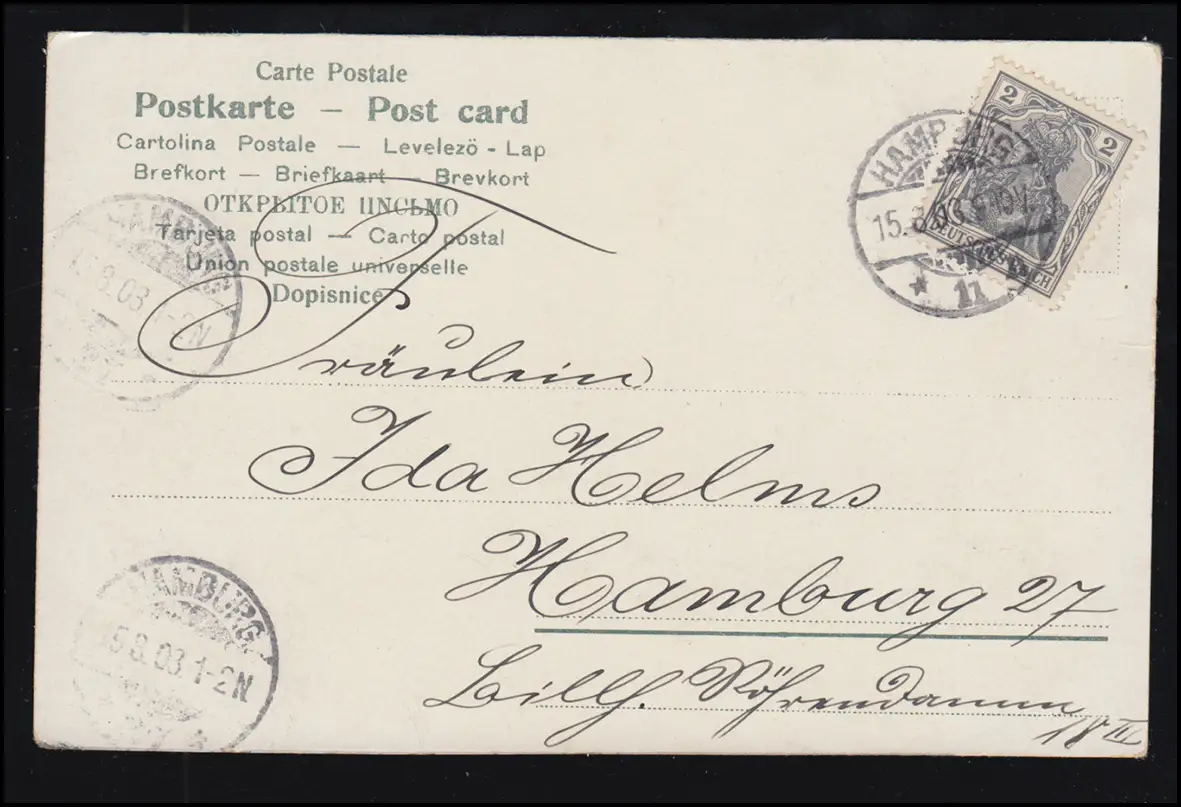 Carte Postale
Postkarte — Post card
Cartolina Postale — Levelezö - Lap
Brefkort — Briefkaart — Brevkort
ОТКРЫТОЕ ПИСЬМО
Tarjeta postal — Carto postal
Union postale universelle
Dopisnice
2 2
DEUTSCHES REICH
HAMBURG
15.8.03. 9-10V.
* 11
HAMBURG
15.8.03. 1-2N
Fräulein
Ida Helms
Hamburg 27
Billh. Röhrendamm
18 III
HAMBURG
15.8.03. 1-2N